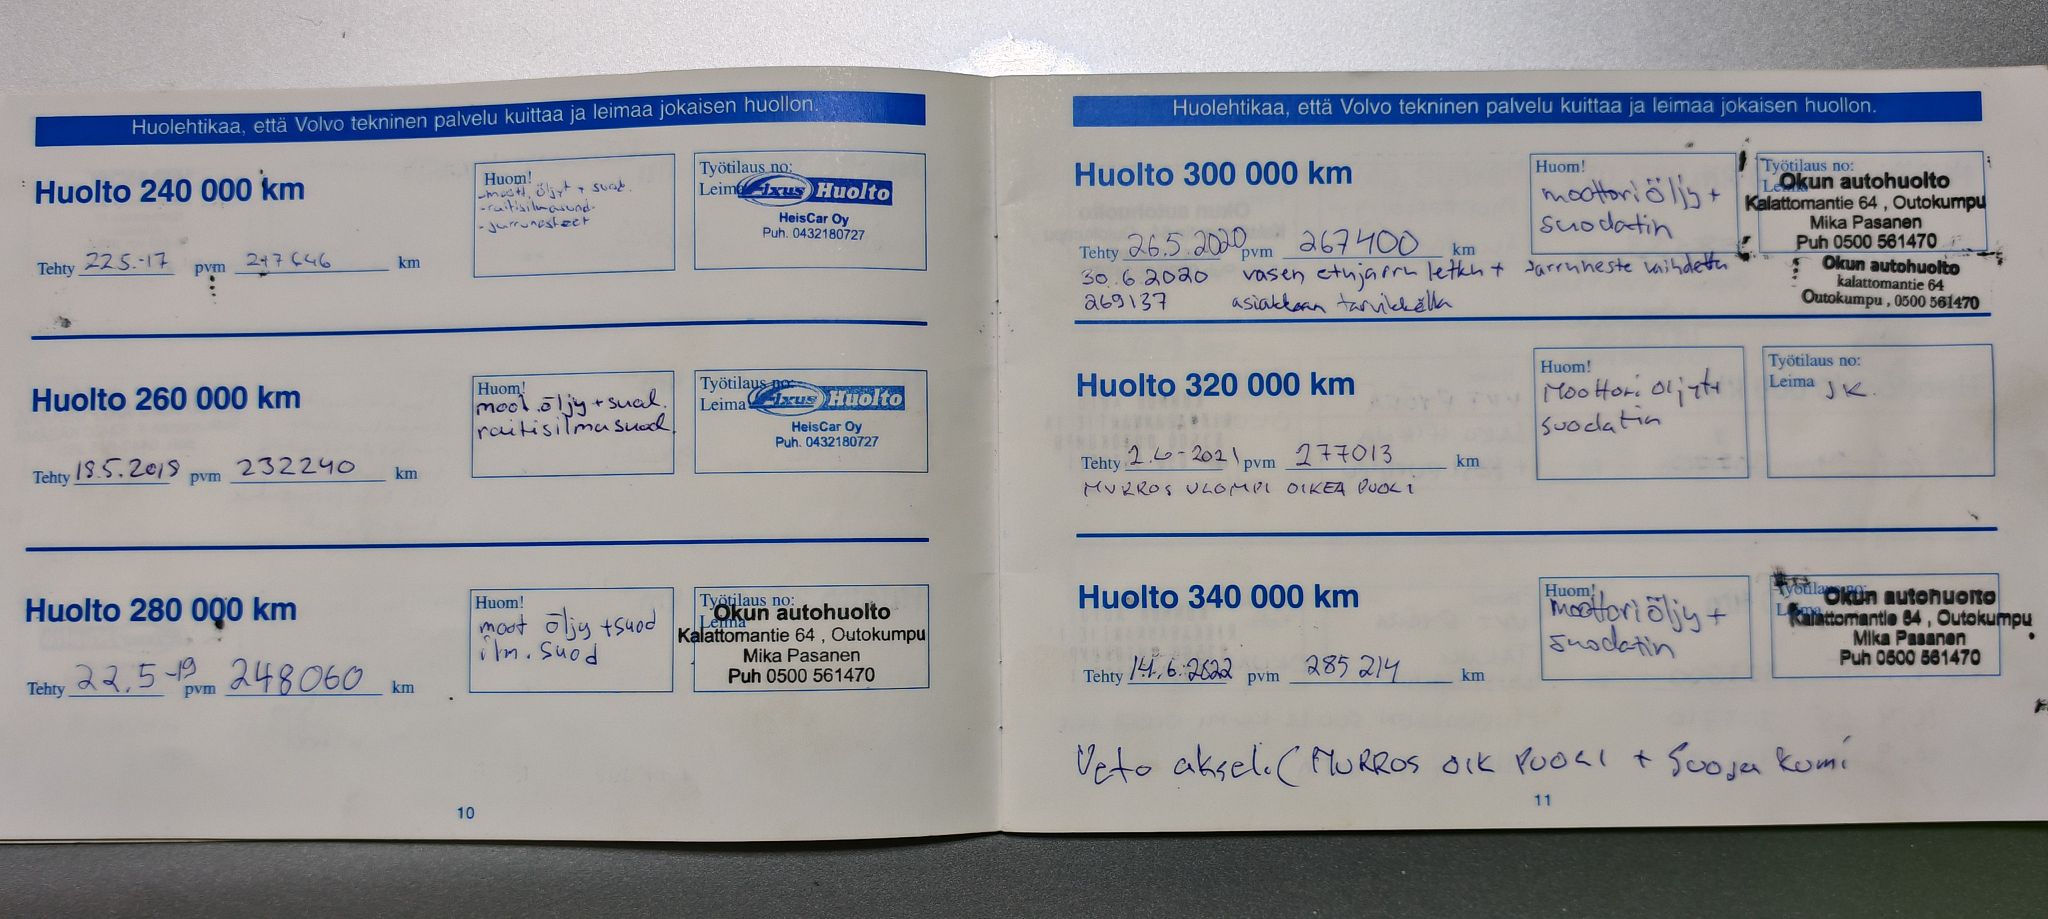 Huolehtikaa, että Volvo tekninen palvelu kuittaa ja leimaa jokaisen huollon.
Huolto 240 000 km
Huom!
-moott. öljyt + suod.
-raitisilmasuod.
-jarrunesteet
Työtilaus no:
Leima Fixus Huolto
HeisCar Oy
Puh. 0432180727
Tehty 22.5.-17 pvm 217646 km
Huolto 260 000 km
Huom!
moot. öljy + suod.
raitisilmasuod.
Työtilaus no:
Leima Fixus Huolto
HeisCar Oy
Puh. 0432180727
Tehty 18.5.2018 pvm 232240 km
Huolto 280 000 km
Huom!
moot öljy + suod
ilm. suod
Työtilaus no:
Leima
Okun autohuolto
Kalattomantie 64 , Outokumpu
Mika Pasanen
Puh 0500 561470
Tehty 22.5-19 pvm 248060 km
10
Huolehtikaa, että Volvo tekninen palvelu kuittaa ja leimaa jokaisen huollon.
Huolto 300 000 km
Huom!
moottoriöljy +
suodatin
Työtilaus no:
Leima
Okun autohuolto
Kalattomantie 64 , Outokumpu
Mika Pasanen
Puh 0500 561470
Tehty 26.5.2020 pvm 267400 km
30.6.2020 vasen etujarru letku + jarruneste vaihdettu
269137 asiakkaan tarvikkeilla
Okun autohuolto
kalattomantie 64
Outokumpu , 0500 561470
Huolto 320 000 km
Huom!
Moottori öljyt+
suodatin
Työtilaus no:
Leima JK.
Tehty 2.6-2021 pvm 277013 km
MURROS ULOMPI OIKEA PUOLI
Huolto 340 000 km
Huom!
Moottoriöljy +
suodatin
Työtilaus no:
Leima
Okun autohuolto
Kalattomantie 64 , Outokumpu
Mika Pasanen
Puh 0500 561470
Tehty 14.6.2022 pvm 285214 km
Veto akseli ( MURROS OIK PUOLI + Suoja kumi
11